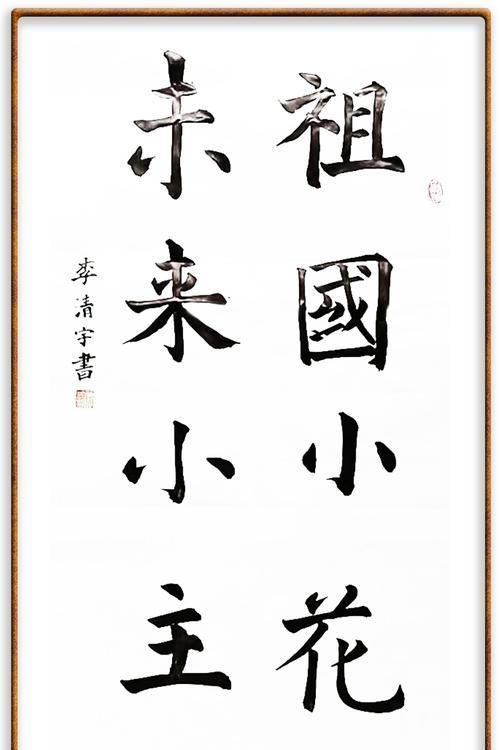 祖國小花
未来小主
李清宇書